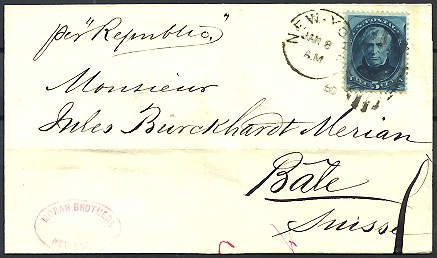 per "Republic."
NEW-YO
JAN 8
A.M
Monsieur
Jules Burckhardt Merian
Bâle
Suisse
MORAN BROTHERS
NEW YORK